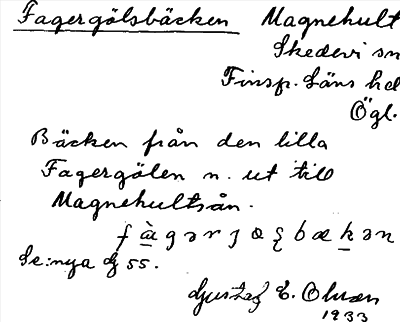 Fagergölsbäcken Magnehult
Skedevi sn
Finsp. Läns hd
Ögl.
Bäcken från den lilla
Fagergölen n. ut till
Magnehultsån.
Se: nya 55.
Gustaf E.
1933